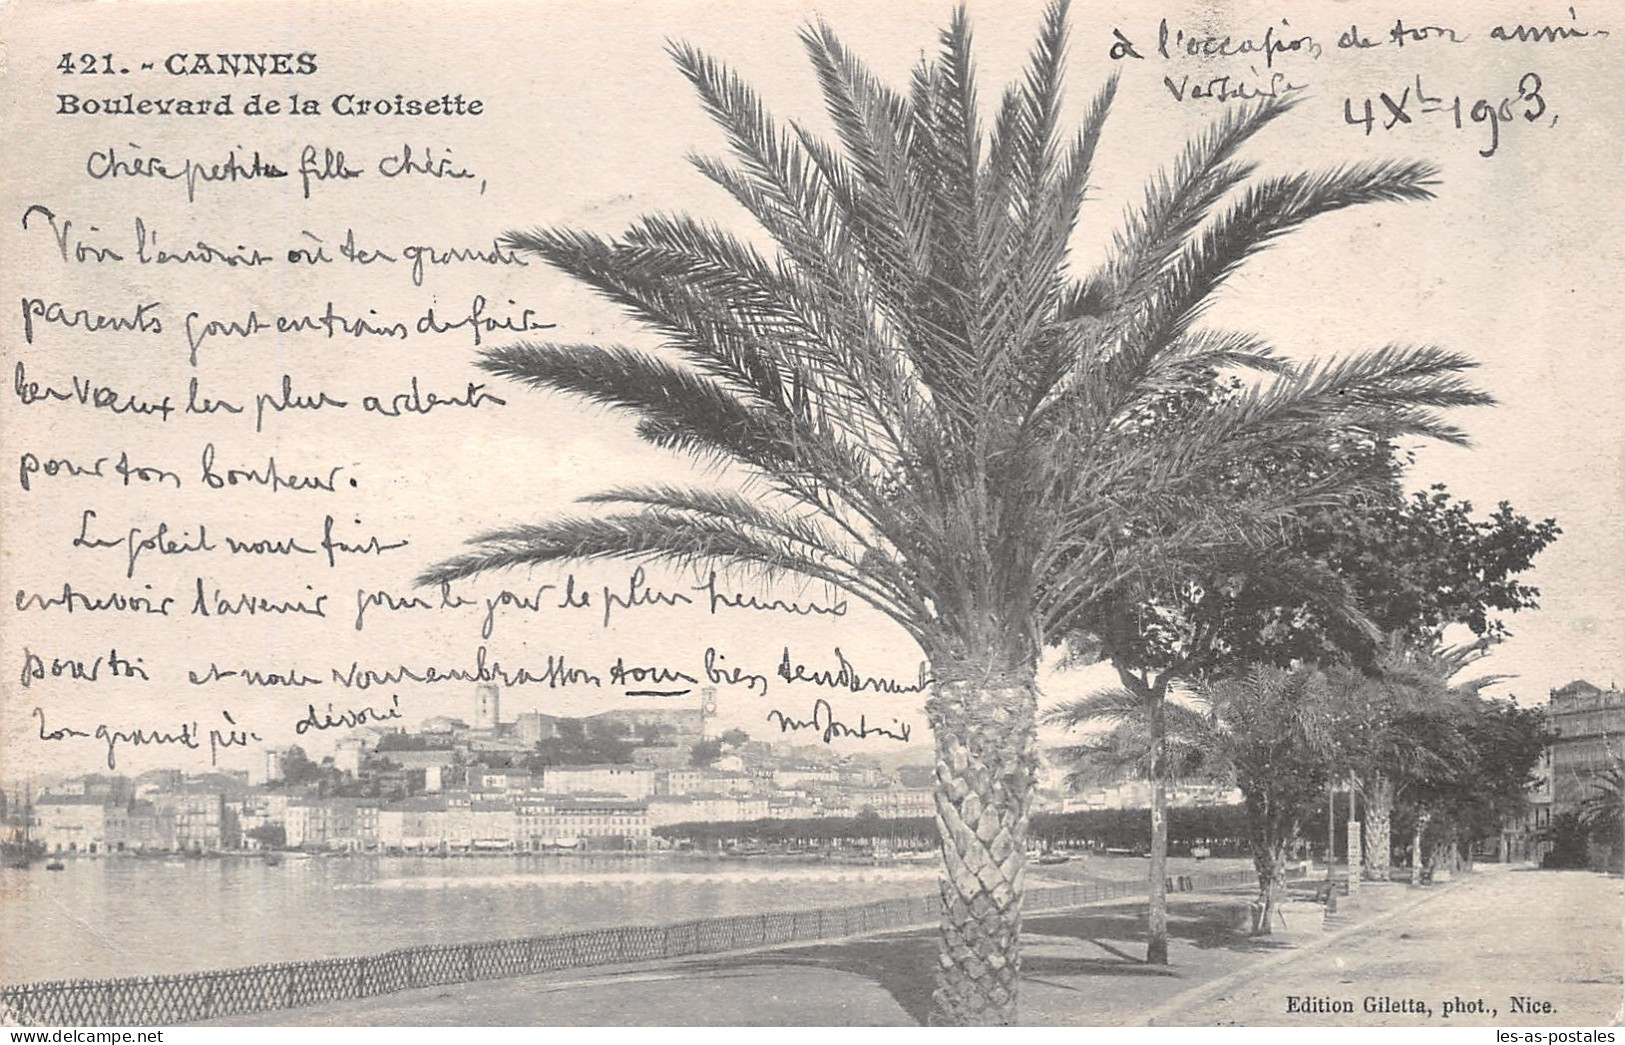 421. - CANNES
Boulevard de la Croisette
à l'occasion de ton anni-
versaire
4 Xb 1903,
Chère petite fille chérie,
Voir l'endroit où tes grands
parents sont en train de faire
les vœux les plus ardents
pour ton bonheur.
Le soleil nous fait
entrevoir l'avenir sous le jour le plus heureux
pour toi et nous vous embrassons tous bien tendrement
Ton grand père dévoué
Edition Giletta, phot., Nice.
les-as-postales